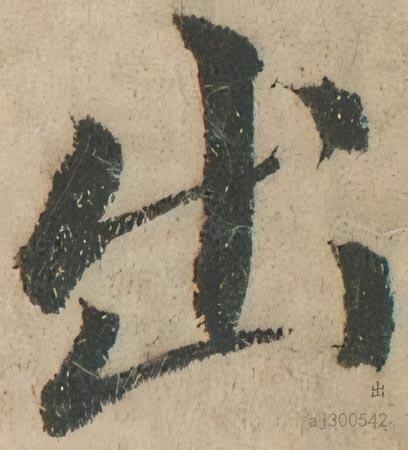 出
出
aj300542